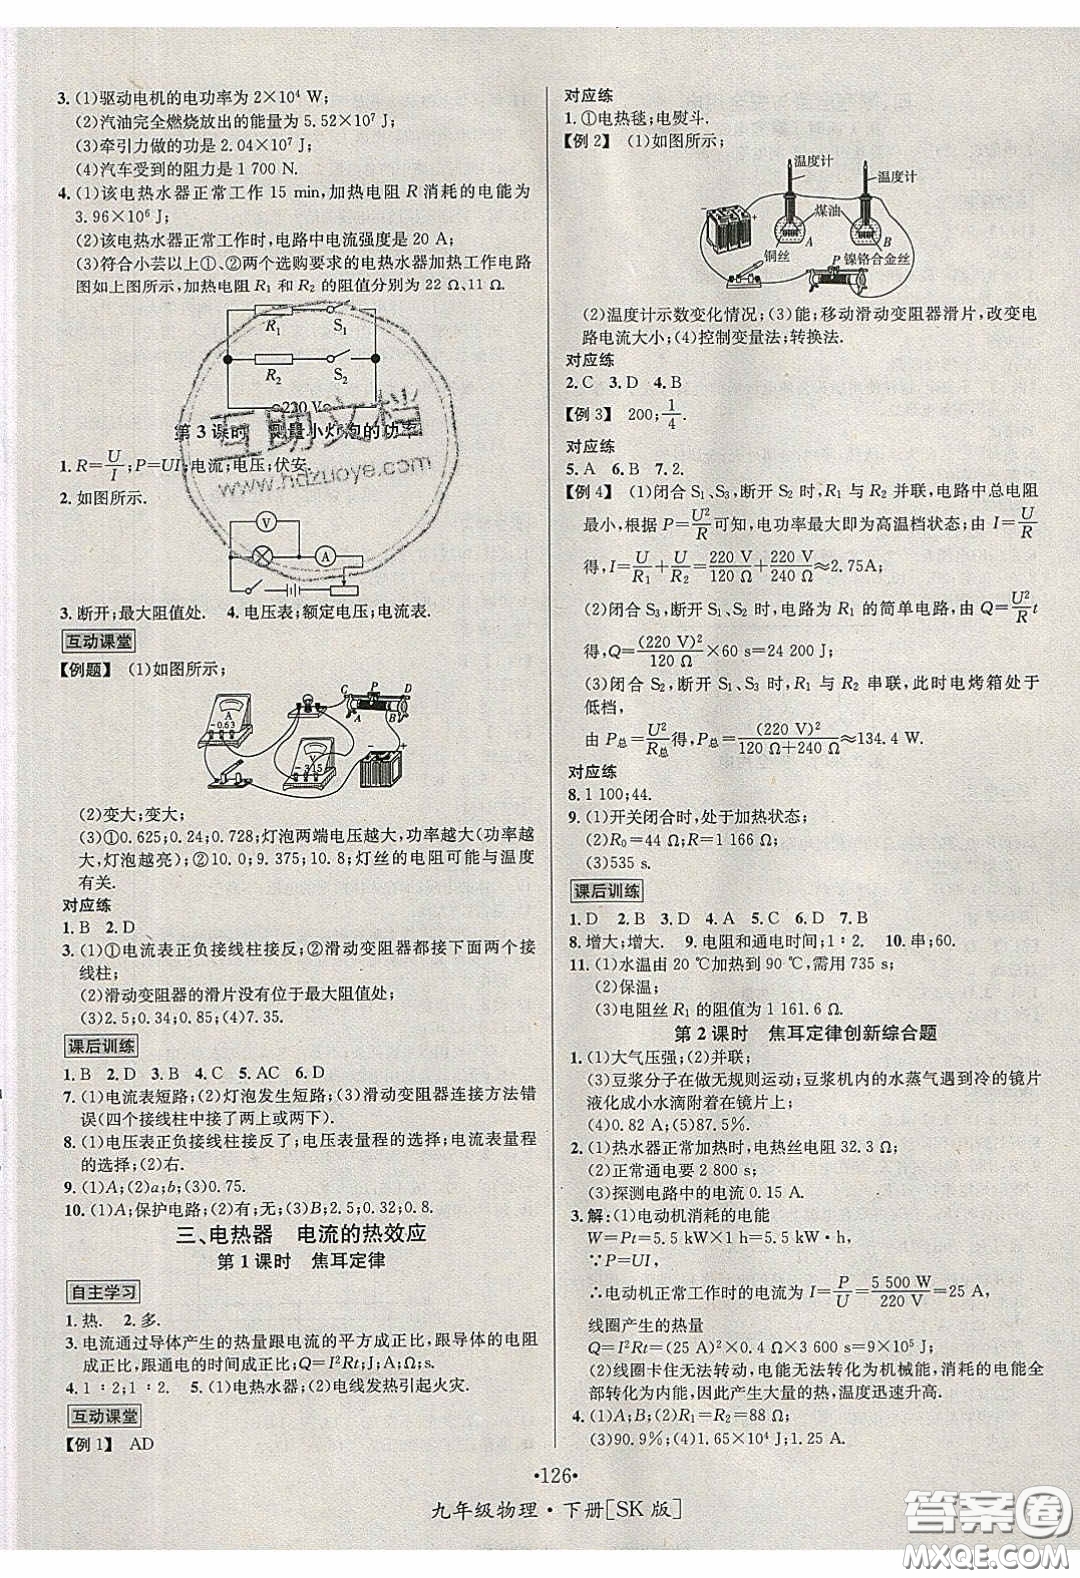 3. (1)驱动电机的电功率为 2×10⁴ W;
(2)汽油完全燃烧放出的能量为 5.52×10⁷ J;
(3)牵引力做的功是 2.04×10⁷ J;
(4)汽车受到的阻力是 1 700 N.
4. (1)该电热水器正常工作 15 min,加热电阻 R 消耗的电能为
3.96×10⁶ J;
(2)该电热水器正常工作时,电路中电流强度是 20 A;
(3)符合小芸以上①、②两个选购要求的电热水器加热工作电路
图如上图所示,加热电阻 R₁ 和 R₂ 的阻值分别为 22 Ω、11 Ω.
R₁ S₁
R₂ S₂
220 V
第 3 课时 测量小灯泡的功率
互助文档
www.hdzuoye.com
1. R=U/I;P=UI;电流;电压;伏安.
2. 如图所示.
V
A
3. 断开;最大阻值处. 4. 电压表;额定电压;电流表.
互动课堂
【例题】 (1)如图所示;
C P D
A B
A
-0.6 3
V
-3 15
(2)变大;变大;
(3)①0.625;0.24;0.728;灯泡两端电压越大,功率越大(功率越
大,灯泡越亮);②10.0;9.375;10.8;灯丝的电阻可能与温度
有关.
对应练
1. B 2. D
3. (1)①电流表正负接线柱接反;②滑动变阻器都接下面两个接
线柱;
(2)滑动变阻器的滑片没有位于最大阻值处;
(3)2.5;0.34;0.85;(4)7.35.
课后训练
1. B 2. D 3. B 4. C 5. AC 6. D
7. (1)电流表短路;(2)灯泡发生短路;(3)滑动变阻器连接方法错
误(四个接线柱中接了两上或两下).
8. (1)电压表正负接线柱接反了;电压表量程的选择;电流表量程
的选择;(2)右.
9. (1)A;(2)a;b;(3)0.75.
10. (1)A;保护电路;(2)有;无;(3)B;2.5;0.32;0.8.
三、电热器 电流的热效应
第 1 课时 焦耳定律
自主学习
1. 热. 2. 多.
3. 电流通过导体产生的热量跟电流的平方成正比,跟导体的电阻
成正比,跟通电的时间成正比;Q=I²Rt;J;A;Ω;s.
4. 1∶2;1∶2. 5. (1)电热水器;(2)电线发热引起火灾.
互动课堂
【例 1】 AD
对应练
1. ①电热毯;电熨斗.
【例 2】 (1)如图所示;
温度计
温度计
煤油
A B
铜丝
P 镍铬合金丝
(2)温度计示数变化情况;(3)能;移动滑动变阻器滑片,改变电
路电流大小;(4)控制变量法;转换法.
对应练
2. C 3. D 4. B
【例 3】 200;1/4.
对应练
5. A 6. B 7. 2.
【例 4】 (1)闭合 S₁、S₃,断开 S₂ 时,R₁ 与 R₂ 并联,电路中总电阻
最小,根据 P=U²/R可知,电功率最大即为高温档状态;由 I=U/R
得,I=U/R₁+U/R₂=220 V/120 Ω+220 V/240 Ω≈2.75A;
(2)闭合 S₃,断开 S₁、S₂ 时,电路为 R₁ 的简单电路,由 Q=U²/R t
得,Q=(220 V)²/120 Ω×60 s=24 200 J;
(3)闭合 S₂,断开 S₁、S₃ 时,R₁ 与 R₂ 串联,此时电烤箱处于
低档,
由 P总=U²/R总得,P总=(220 V)²/(120 Ω+240 Ω)≈134.4 W.
对应练
8. 1 100;44.
9. (1)开关闭合时,处于加热状态;
(2)R₀=44 Ω;R=1 166 Ω;
(3)535 s.
课后训练
1. D 2. B 3. B 4. A 5. C 6. D 7. B
8. 增大;增大. 9. 电阻和通电时间;1∶2. 10. 串;60.
11. (1)水温由 20 ℃加热到 90 ℃,需用 735 s;
(2)保温;
(3)电阻丝 R₁ 的阻值为 1 161.6 Ω.
第 2 课时 焦耳定律创新综合题
1. (1)大气压强;(2)并联;
(3)豆浆分子在做无规则运动;豆浆机内的水蒸气遇到冷的镜片
液化成小水滴附着在镜片上;
(4)0.82 A;(5)87.5%.
2. (1)热水器正常加热时,电热丝电阻 32.3 Ω;
(2)正常通电要 2 800 s;
(3)探测电路中的电流 0.15 A.
3. 解:(1)电动机消耗的电能
W=Pt=5.5 kW×1 h=5.5 kW·h,
∵P=UI,
∴电动机正常工作时的电流为 I=P/U=5 500 W/220 V=25 A,
线圈产生的热量
Q=I²Rt=(25 A)²×0.4 Ω×3 600 s=9×10⁵ J;
(2)线圈卡住无法转动,电能无法转化为机械能,消耗的电能全
部转化为内能,因此产生大量的热,温度迅速升高.
4. (1)A;B;(2)R₁=R₂=88 Ω;
(3)90.9%;(4)1.65×10⁴ J;1.25 A.
·126·
九年级物理·下册[SK 版]
答案圈
MXQE.COM